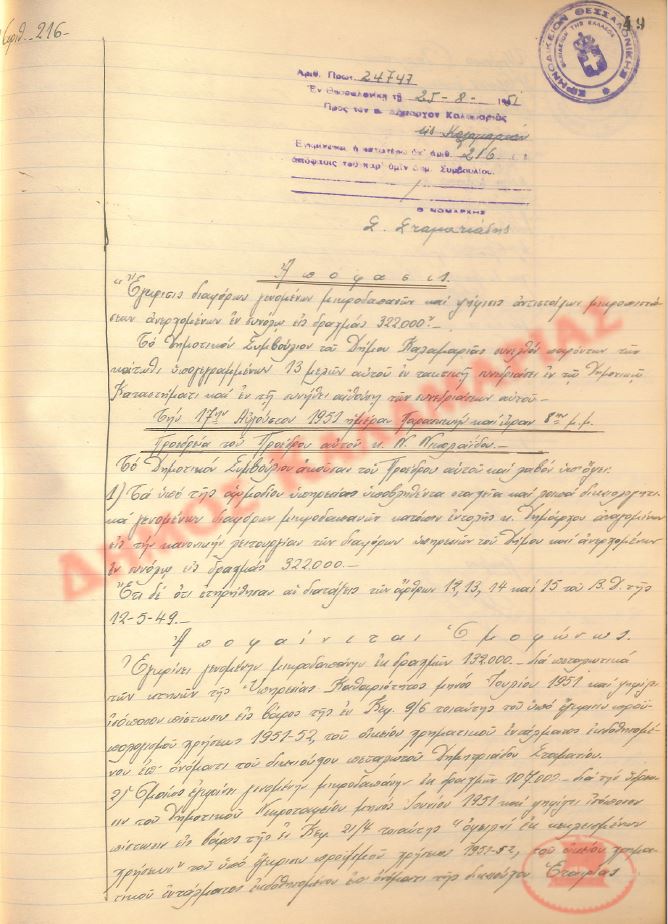 Αριθ. 216-
49
ΕΙΡΗΝΟΔΙΚΕΙΟΝ ΘΕΣΣΑΛΟΝΙΚΗΣ
ΒΑΣΙΛΕΙΟΝ ΤΗΣ ΕΛΛΑΔΟΣ
Αριθ. Πρωτ. 24747
Εν Θεσσαλονίκη τη 25-8-1951
Προς τον κ. Δήμαρχον Καλαμαριάς
εις Καλαμαριάν
Εγκρίνεται η κατωτέρω υπ' αριθ. 216
απόφασις του παρ' υμίν Δημ. Συμβουλίου.
Ο ΝΟΜΑΡΧΗΣ
Σ. Σταματιάδης
Ἀπόφασις.
"Ἔγκρισις διαφόρων γενομένων μικροδαπανῶν καὶ ψήφισις ἀντιστοίχων μικροπιστώ-
σεων ἀνερχομένων ἐν συνόλῳ εἰς δραχμάς 322.000".-
Τὸ Δημοτικὸν Συμβούλιον τοῦ Δήμου Καλαμαριᾶς συνελθὸν παρόντων τῶν
κάτωθι ὑπογεγραμμένων 13 μελῶν αὐτοῦ ἐν τακτικῇ συνεδριάσει ἐν τῷ Δημοτικῷ
Καταστήματι καὶ ἐν τῇ συνήθει αἰθούσῃ τῶν συνεδριάσεων αὐτοῦ-
Τὴν 17ην Αὐγούστου 1951 ἡμέραν Παρασκευὴν καὶ ὥραν 8ην μ.μ.
Προεδρίᾳ τοῦ Προέδρου αὐτοῦ κ. Ν. Νικολαΐδου.-
Τὸ Δημοτικὸν Συμβούλιον ἀκοῦσαν τοῦ Προέδρου αὐτοῦ καὶ λαβὸν ὑπ' ὄψει:
1) Τὰ ὑπὸ τῆς ἁρμοδίου ὑπηρεσίας ὑποβληθέντα στοιχεῖα καὶ λοιπὰ δικαιολογητι-
κά γενομένων διαφόρων μικροδαπανῶν κατόπιν ἐντολῆς κ. Δημάρχου ἀναγομένων
εἰς τὴν κανονικὴν λειτουργίαν τῶν διαφόρων ὑπηρεσιῶν τοῦ Δήμου καὶ ἀνερχομένων
ἐν συνόλῳ εἰς δραχμάς 322.000.-
Ἔτι δὲ ὅτι ἐτηρήθησαν αἱ διατάξεις τῶν ἄρθρων 12, 13, 14 καὶ 15 τοῦ Β.Δ. τῆς
12-5-49.-
Ἀποφαίνεται Ὁμοφώνως.
1) Ἐγκρίνει γενομένην μικροδαπάνην ἐκ δραχμῶν 132.000.- διὰ πεταλωτικά
τῶν κτηνῶν τῆς Ὑπηρεσίας Καθαριότητος μηνὸς Ἰουλίου 1951 καὶ ψηφίζει
ἰσόποσον πίστωσιν εἰς βάρος τῆς ἐν Κεφ. 9/6 τοιαύτης τοῦ ὑπὸ ἔγκρισιν προϋ-
πολογισμοῦ χρήσεως 1951-52, τοῦ οἰκείου χρηματικοῦ ἐντάλματος ἐκδοθησομέ-
νου ἐπ' ὀνόματι τοῦ δικαιούχου πεταλωτοῦ Δημητριάδου Σταματίου.
2) Ὁμοίως ἐγκρίνει γενομένην μικροδαπάνην ἐκ δραχμῶν 107.000- διὰ τὴν ὕδρευ-
σιν τοῦ Δημοτικοῦ Νεκροταφείου μηνὸς Ἰουνίου 1951 καὶ ψηφίζει ἰσόποσον
πίστωσιν εἰς βάρος τῆς ἐν Κεφ. 21/4 τοιαύτης "ὀφειλαὶ ἐκ κεκλεισμένων
χρήσεων" τοῦ ὑπὸ ἔγκρισιν προϋπ/σμοῦ χρήσεως 1951-52, τοῦ οἰκείου χρημα-
τικοῦ ἐντάλματος ἐκδοθησομένου ἐπ' ὀνόματι τῆς δικαιούχου Ἑταιρίας
ΔΗΜΟΣ ΚΑΛΑΜΑΡΙΑΣ